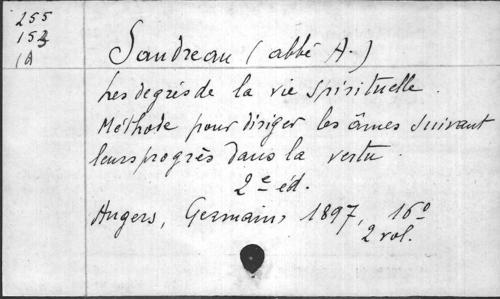 255
153
1A
Saudreau (abbé A.)
Les degrés de la vie spirituelle.
Méthode pour diriger les âmes suivant
leurs progrès dans la vertu.
2e éd.
Angers, Germain, 1897, 16°
2 vol.